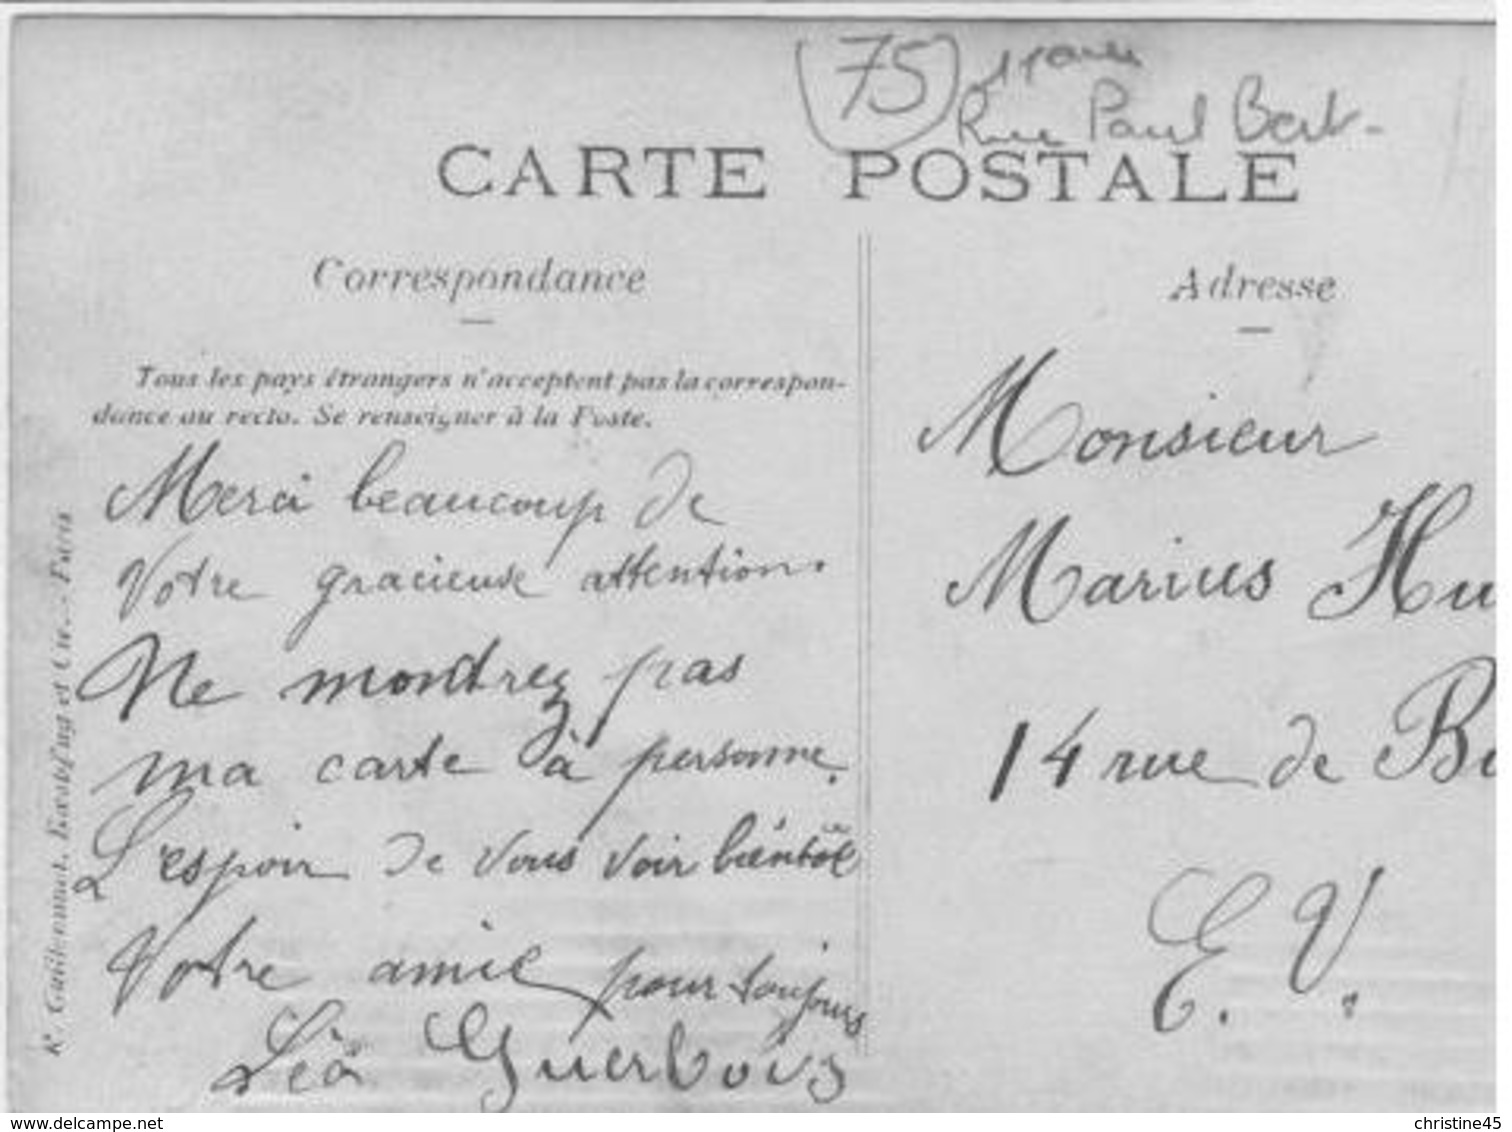 75
Rue Paul Bert
CARTE POSTALE
Correspondance
Adresse
Tous les pays étrangers n'acceptent pas la correspon-
dance au recto. Se renseigner à la Poste.
Merci beaucoup de
Votre gracieuse attention.
Ne montrez pas
ma carte à personne.
L'espoir de vous voir bientôt
Votre amie pour toujours
Léa Guerbois
Monsieur
Marius Hu
14 rue de B
E. V.
et Cie. - Paris
www.delcampe.net
christine45